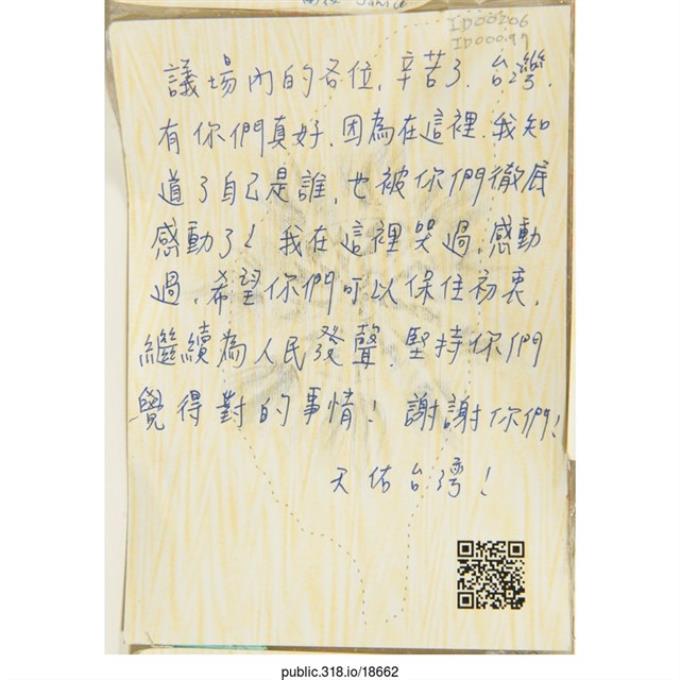 ID00206
ID00097
議場內的各位,辛苦了.台灣.
有你們真好.因為在這裡.我知
道了自己是誰,也被你們徹底
感動了!我在這裡哭過,感動
過,希望你們可以保住初衷,
繼續為人民發聲.堅持你們
覺得對的事情!謝謝你們!
天佑台灣!
public.318.io/18662